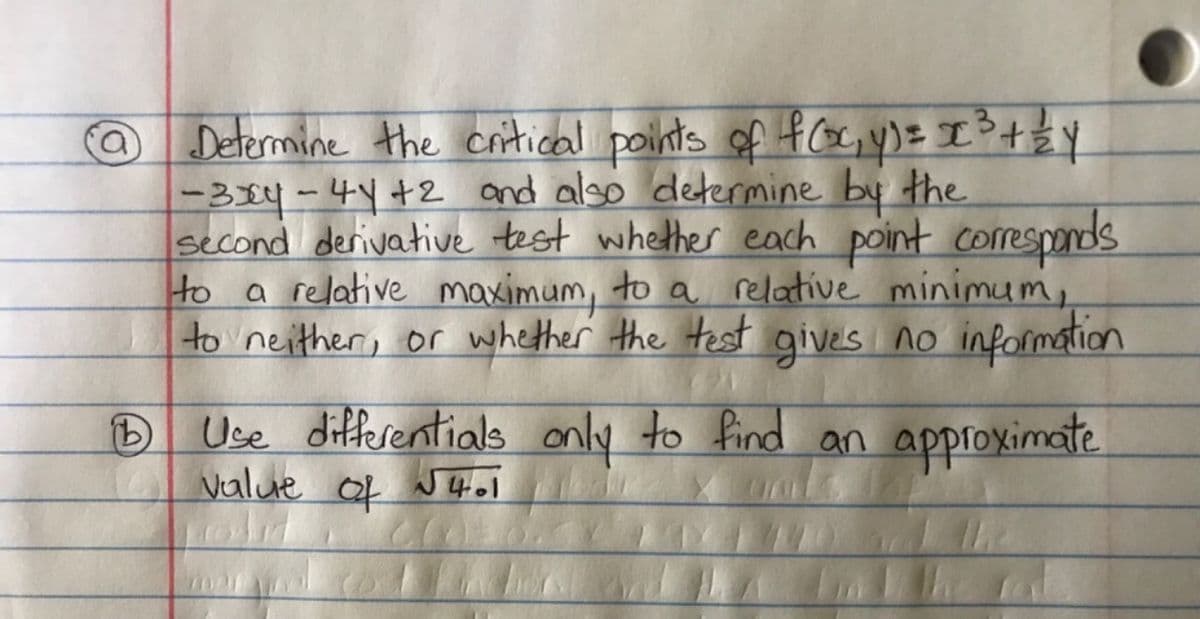 (a) Determine the critical points of f(x,y)= x³+½y
-3xy-4y+2 and also determine by the
second derivative test whether each point corresponds
to a relative maximum, to a relative minimum,
to neither, or whether the test gives no information
(b) Use differentials only to find an approximate
value of √4.1